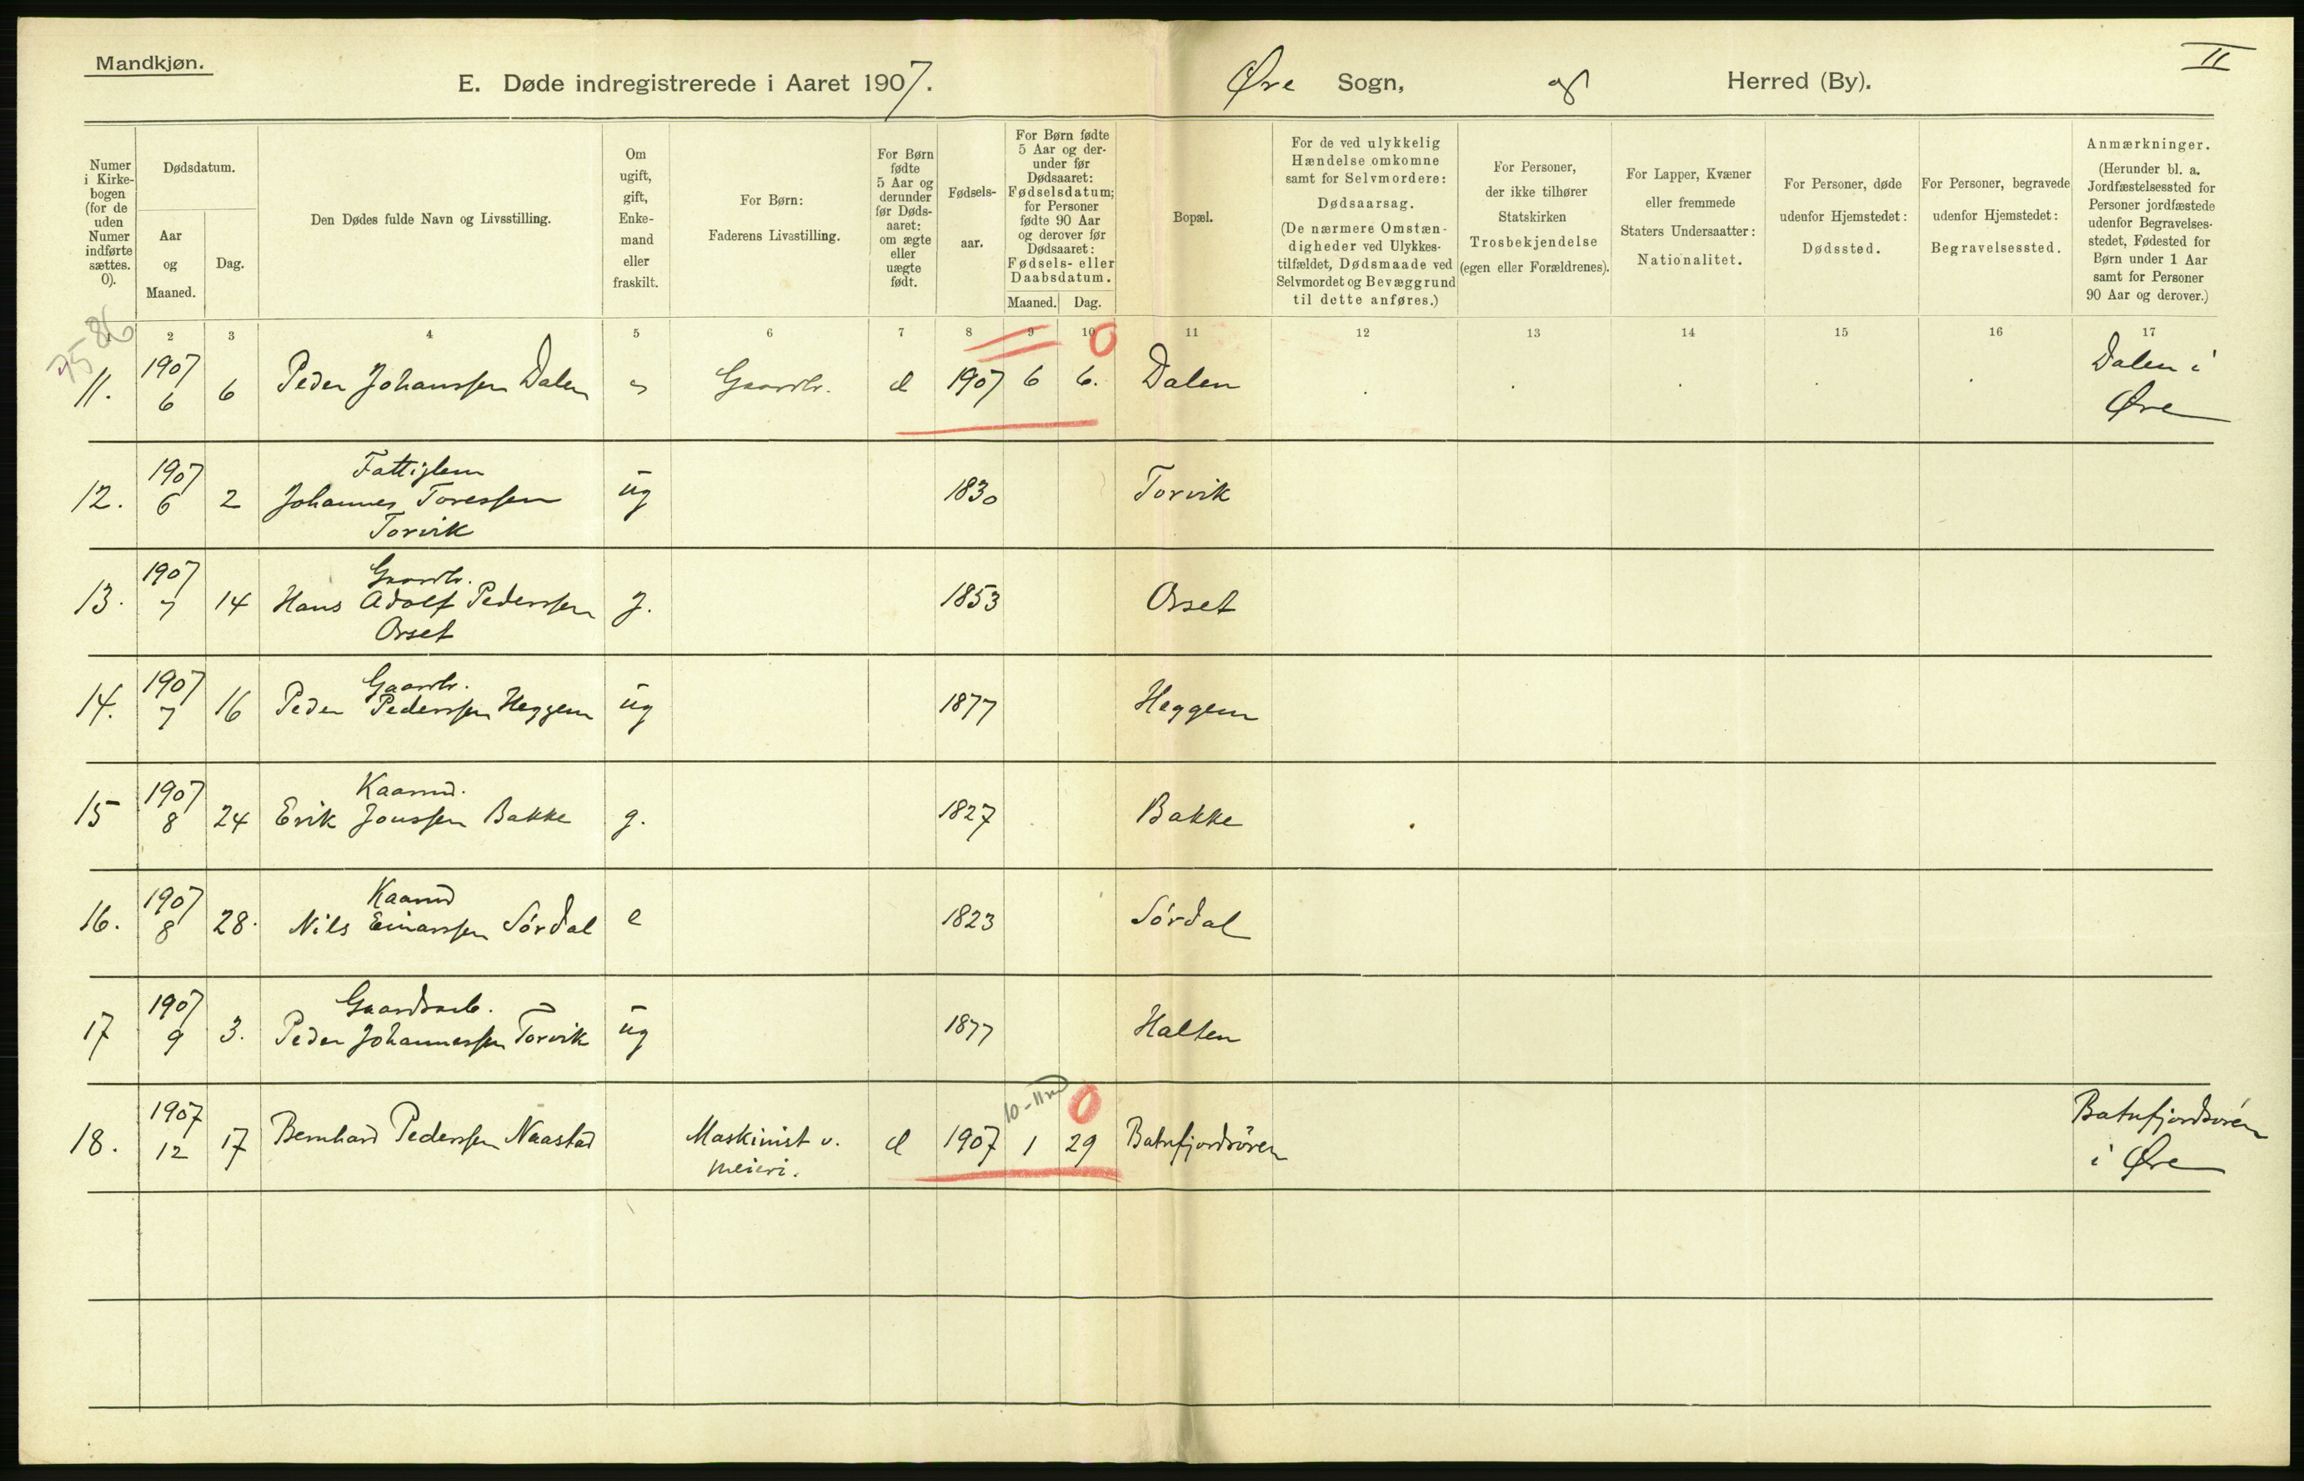 Mandkjøn.
E. Døde indregistrerede i Aaret 1907.
Øre Sogn, og Herred (By).
II
Numer
i Kirke-
bogen
(for de
uden
Numer
indførte
sættes.
0).
Dødsdatum.
Aar
og
Maaned.
Dag.
Den Dødes fulde Navn og Livsstilling.
Om
ugift,
gift,
Enke-
mand
eller
fraskilt.
For Børn:
Faderens Livsstilling.
For Børn
fødte
5 Aar og
derunder
før Døds-
aaret:
om ægte
eller
uægte
født.
Fødsels-
aar.
For Børn fødte
5 Aar og der-
under før
Dødsaaret:
Fødselsdatum;
for Personer
fødte 90 Aar
og derover før
Dødsaaret:
Fødsels- eller
Daabsdatum.
Maaned. Dag.
Bopæl.
For de ved ulykkelig
Hændelse omkomne
samt for Selvmordere:
Dødsaarsag.
(De nærmere Omstæn-
digheder ved Ulykkes-
tilfældet, Dødsmaade ved
Selvmordet og Bevæggrund
til dette anføres.)
For Personer,
der ikke tilhører
Statskirken
Trosbekjendelse
(egen eller Forældrenes).
For Lapper, Kvæner
eller fremmede
Staters Undersaatter:
Nationalitet.
For Personer, døde
udenfor Hjemstedet:
Dødssted.
For Personer, begravede
udenfor Hjemstedet:
Begravelsessted.
Anmærkninger.
(Herunder bl. a.
Jordfæstelsessted for
Personer jordfæstede
udenfor Begravelses-
stedet, Fødested for
Børn under 1 Aar
samt for Personer
90 Aar og derover.)
75-86
2 3 4 5 6 7 8 9 10 11 12 13 14 15 16 17
0
11. 1907 6 6 Peder Johanssen Dalen Gaardbr. 1907 6 6. Dalen Dalen i
Øre
Fattiglem
12. 1907 6 2 Johannes Toressen ug 1830 Torvik
Torvik
Gaardbr.
13. 1907 7 14 Hans Adolf Pederssen g. 1853 Orset
Orset
Gaardbr.
14. 1907 7 16 Peder Pederssen Heggem ug 1877 Heggem
Kaarmd.
15 1907 8 24 Erik Jonssen Bakke g. 1827 Bakke
Kaarmd
16. 1907 8 28. Nils Einarssen Sørdal e 1823 Sørdal
Gaardsarb.
17 1907 9 3. Peder Johannessen Torvik ug 1877 Halten
10-11 0
18. 1907 12 17 Bernhard Pederssen Naastad Maskinist v. 1907 1 29 Batnfjordsøren Batnfjordsøren
meieri. i Øre